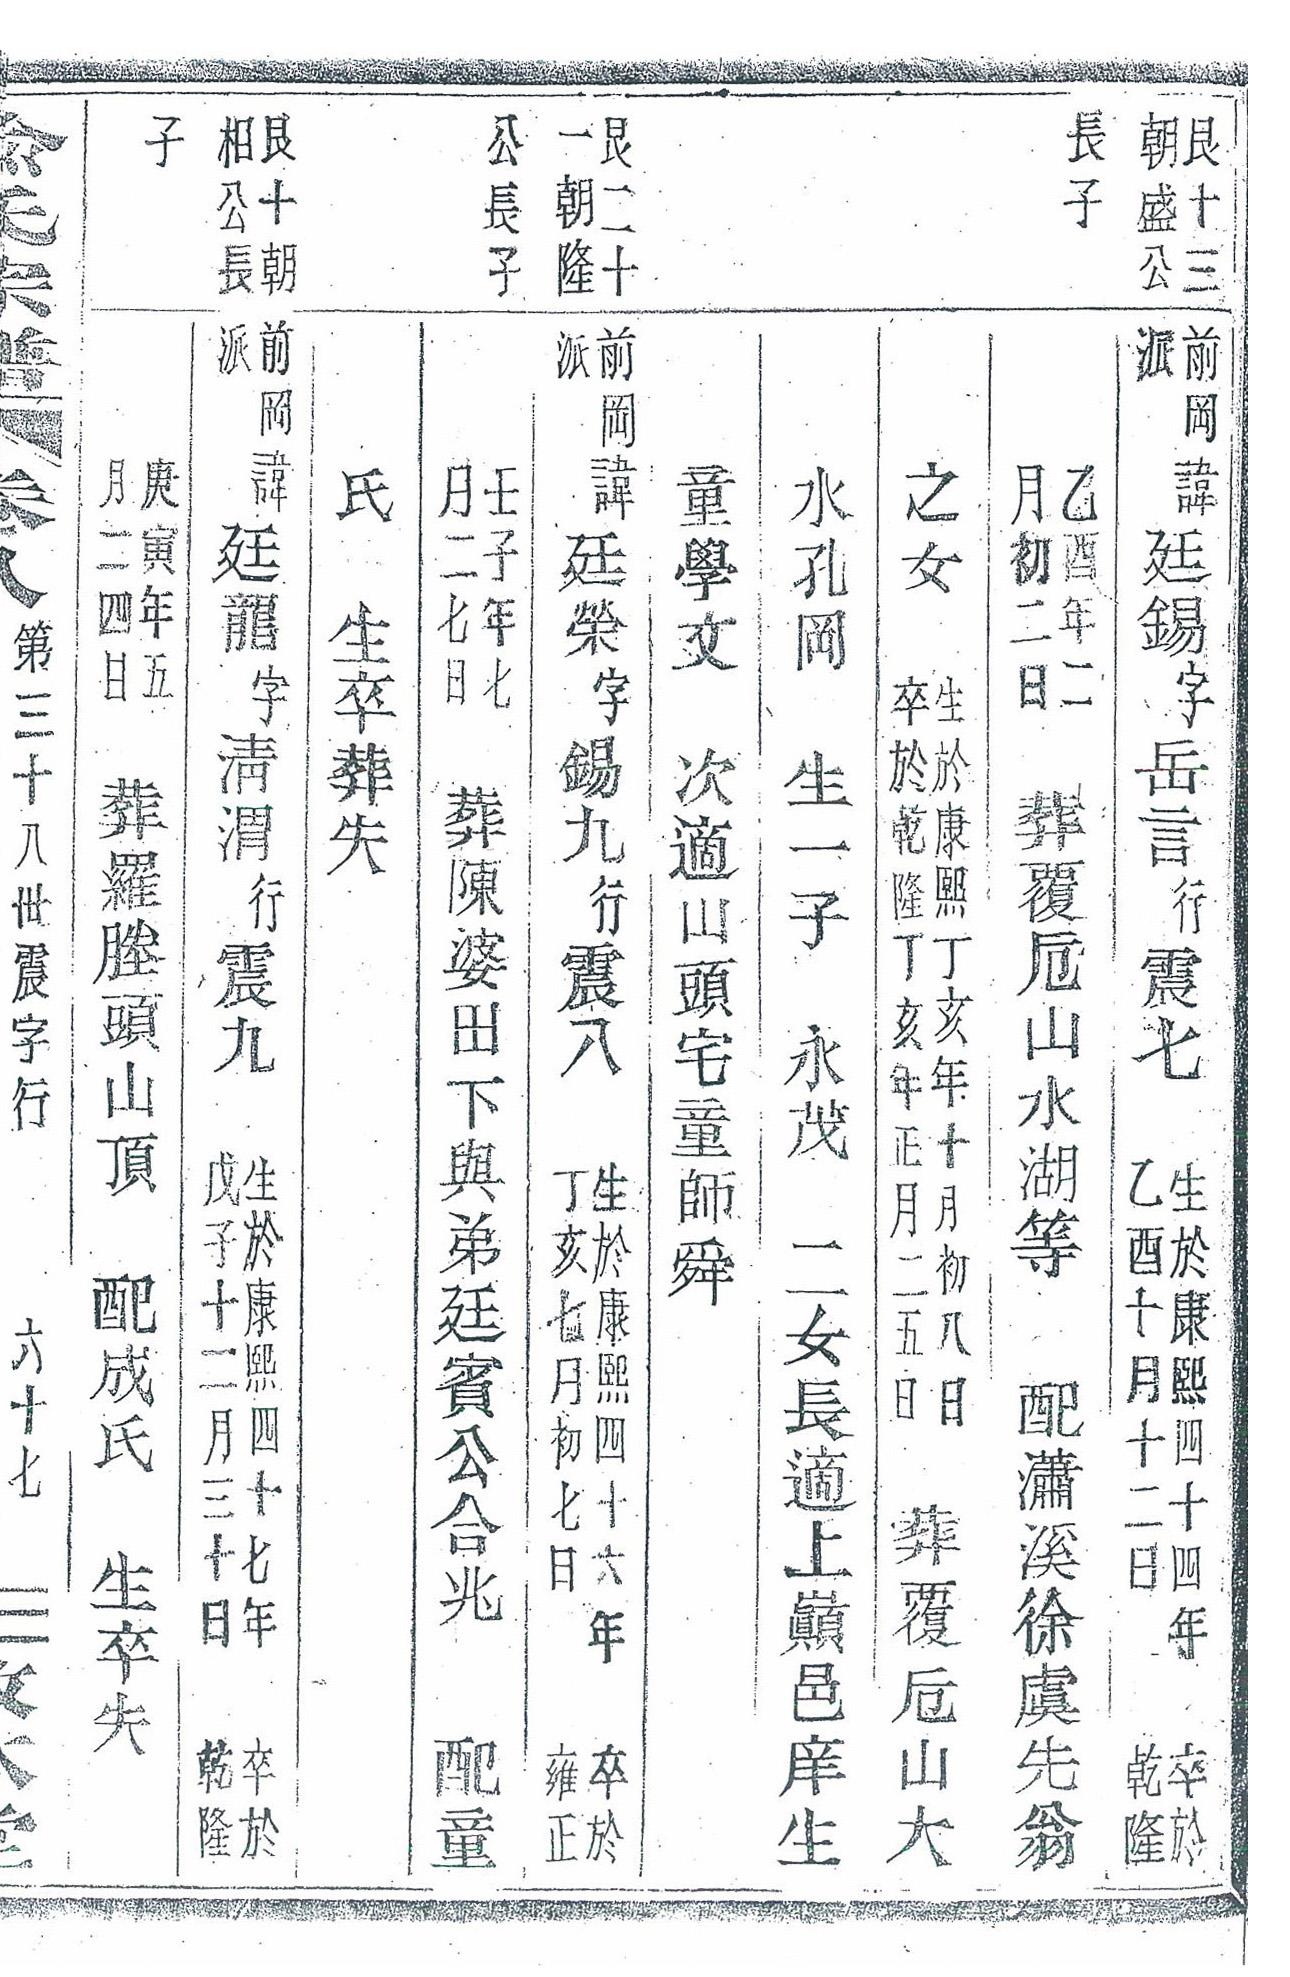 艮十三
朝盛公
長子
前岡諱廷錫字岳言行震七 生於康熙四十四年 卒於
派 乙酉十月十二日 乾隆
乙酉年二
月初二日 葬覆卮山水湖等 配瀟溪徐虞先翁
之女 生於康熙丁亥年十月初八日
卒於乾隆丁亥年正月二五日 葬覆卮山大
水孔岡 生一子 永茂 二女長適上巔邑庠生
童學文 次適山頭宅童師舜
艮二十
一朝隆
公長子
前岡諱廷榮字錫九行震八 生於康熙四十六年 卒於
派 丁亥七月初七日 雍正
壬子年七
月二七日 葬陳婆田下與弟廷賓公合兆 配童
氏 生卒葬失
艮十朝
相公長
子
前岡諱廷龍字淸渭行震九 生於康熙四十七年 卒於
派 戊子十二月三十日 乾隆
庚寅年五
月二四日 葬羅塍頭山頂 配成氏 生卒失
氏宗譜 卷八 第三十八世震字行 六十七